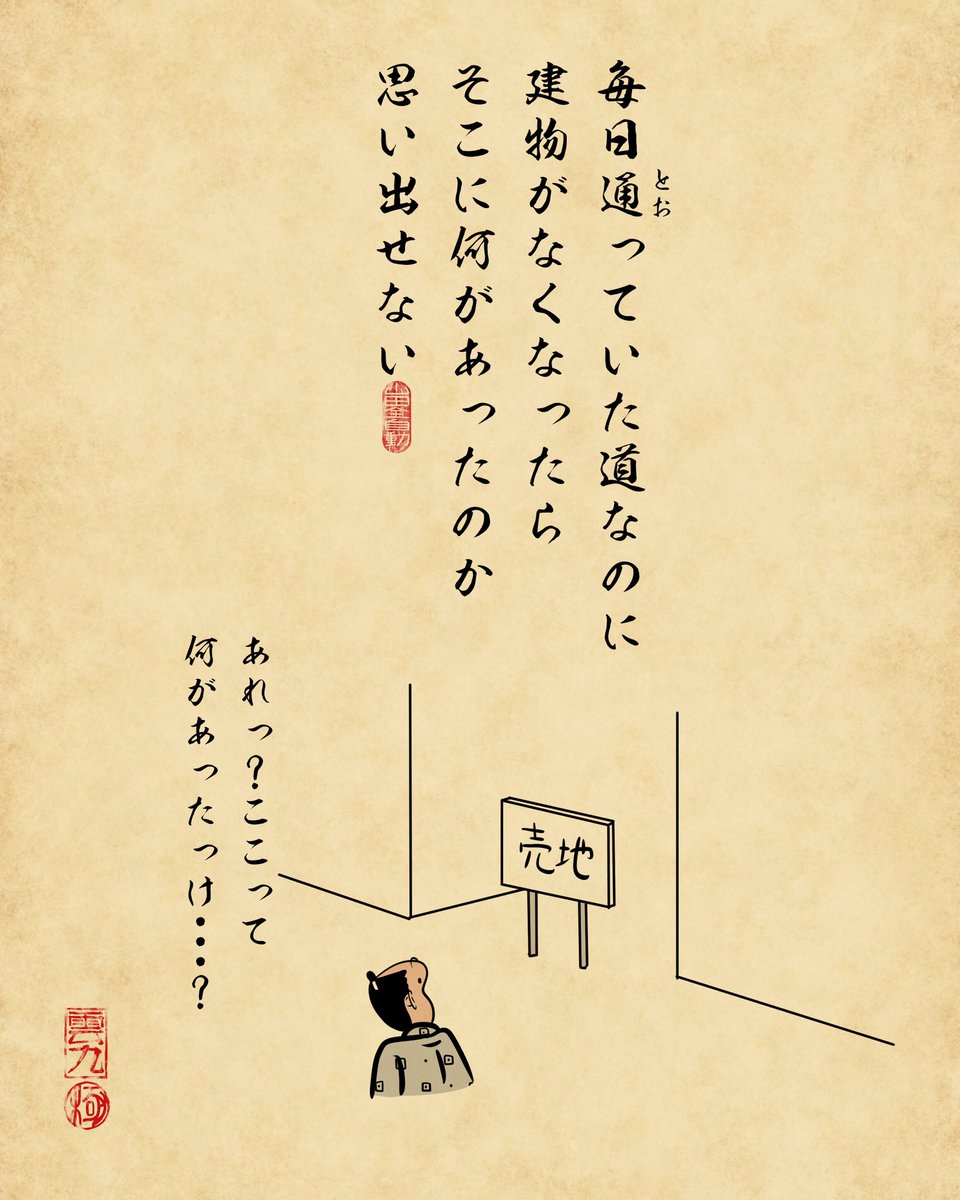 毎日通っていた道なのに
とお
建物がなくなったら
そこに何があったのか
思い出せない
売地
あれっ?ここって
何があったっけ・・・?